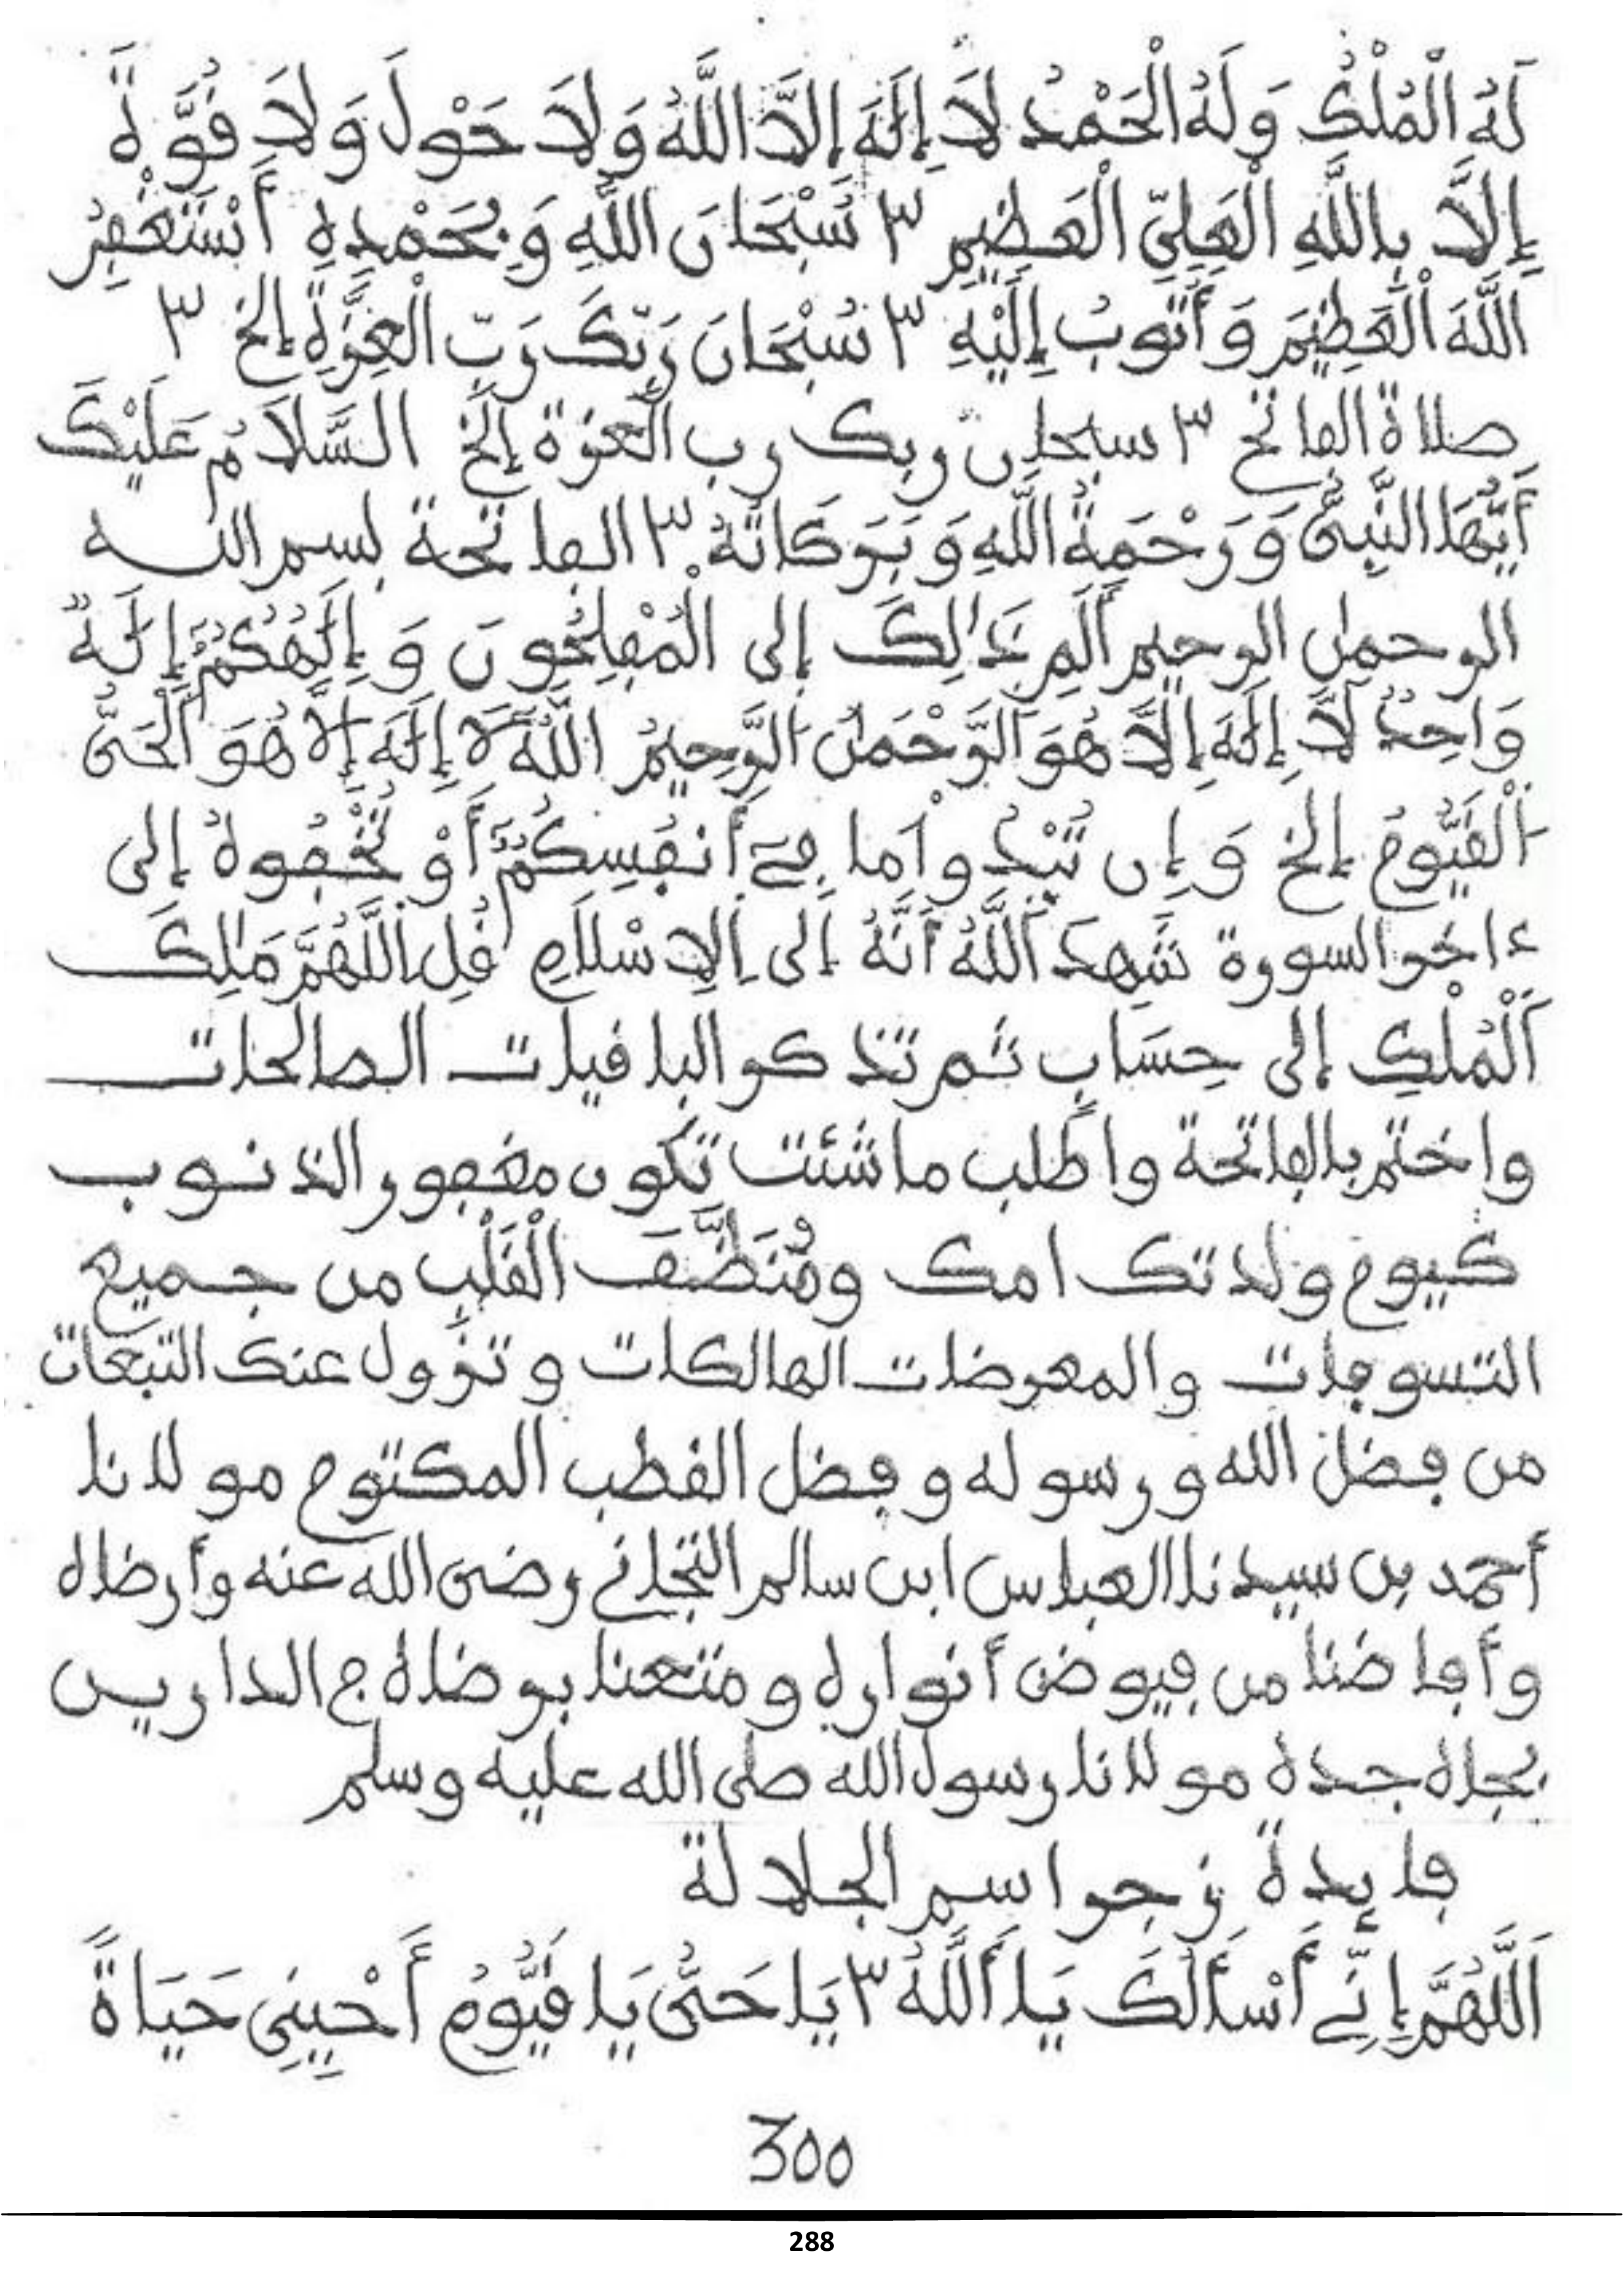 لَهُ الْمُلْكُ وَلَهُ الْحَمْدُ لَا إِلَهَ إِلَّا اللَّهُ وَلَا حَوْلَ وَلَا قُوَّةَ
إِلَّا بِاللَّهِ الْعَلِيِّ الْعَظِيمِ ٣ سُبْحَانَ اللَّهِ وَبِحَمْدِهِ أَسْتَغْفِرُ
اللَّهَ الْعَظِيمَ وَأَتُوبُ إِلَيْهِ ٣ سُبْحَانَ رَبِّكَ رَبِّ الْعِزَّةِ إلخ ٣
صلاة الفاتح ٣ سبحان ربك رب العزة إلخ السَّلَامُ عَلَيْكَ
أَيُّهَا النَّبِيُّ وَرَحْمَةُ اللَّهِ وَبَرَكَاتُهُ ٣ الفاتحة بسم الله
الرحمن الرحيم أَلَمِ ذَالِكَ إلى الْمُفْلِحُونَ وَإِلَهُكُمْ إِلَهٌ
وَاحِدٌ لَا إِلَهَ إِلَّا هُوَ الرَّحْمَنُ الرَّحِيمُ اللَّهُ لَا إِلَهَ إِلَّا هُوَ الْحَيُّ
الْقَيُّومُ إلخ وَإِن تُبْدُوا مَا فِي أَنفُسِكُمْ أَوْ تُخْفُوهُ إلى
ءاخر السورة شَهِدَ اللَّهُ أَنَّهُ إلى الِاسْلَامِ قُلِ اللَّهُمَّ مَالِكَ
الْمُلْكِ إلى حِسَابٍ ثم تذكر الباقيات الصالحات
واختم بالفاتحة واطلب ما شئت تكون مغفور الذنوب
كيوم ولدتك امك ومُنَظَّفَ الْقَلْبِ من جميع
التسوفات والمعرضات الهالكات وتزول عنك التبعات
من فضل الله ورسوله وفضل القطب المكتوم مولانا
أحمد بن سيدنا العباس ابن سالم التجاني رضى الله عنه وأرضاه
وأفاضنا من فيوض أنواره ومتعنا برضاه في الدارين
بجاه جده مولانا رسول الله صلى الله عليه وسلم
فايدة زجر اسم الجلالة
اَللَّهُمَّ إِنِّي أَسْأَلُكَ يَا أَللَّهُ ٣ يَا حَيُّ يَا قَيُّومُ أَحْيِنِي حَيَاةً
300
288